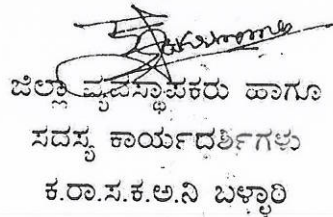 ಜಿಲ್ಲಾ ವ್ಯವಸ್ಥಾಪಕರು ಹಾಗೂ
ಸದಸ್ಯ ಕಾರ್ಯದರ್ಶಿಗಳು
ಕ.ರಾ.ಸ.ಕ.ಅ.ನಿ ಬಳ್ಳಾರಿ